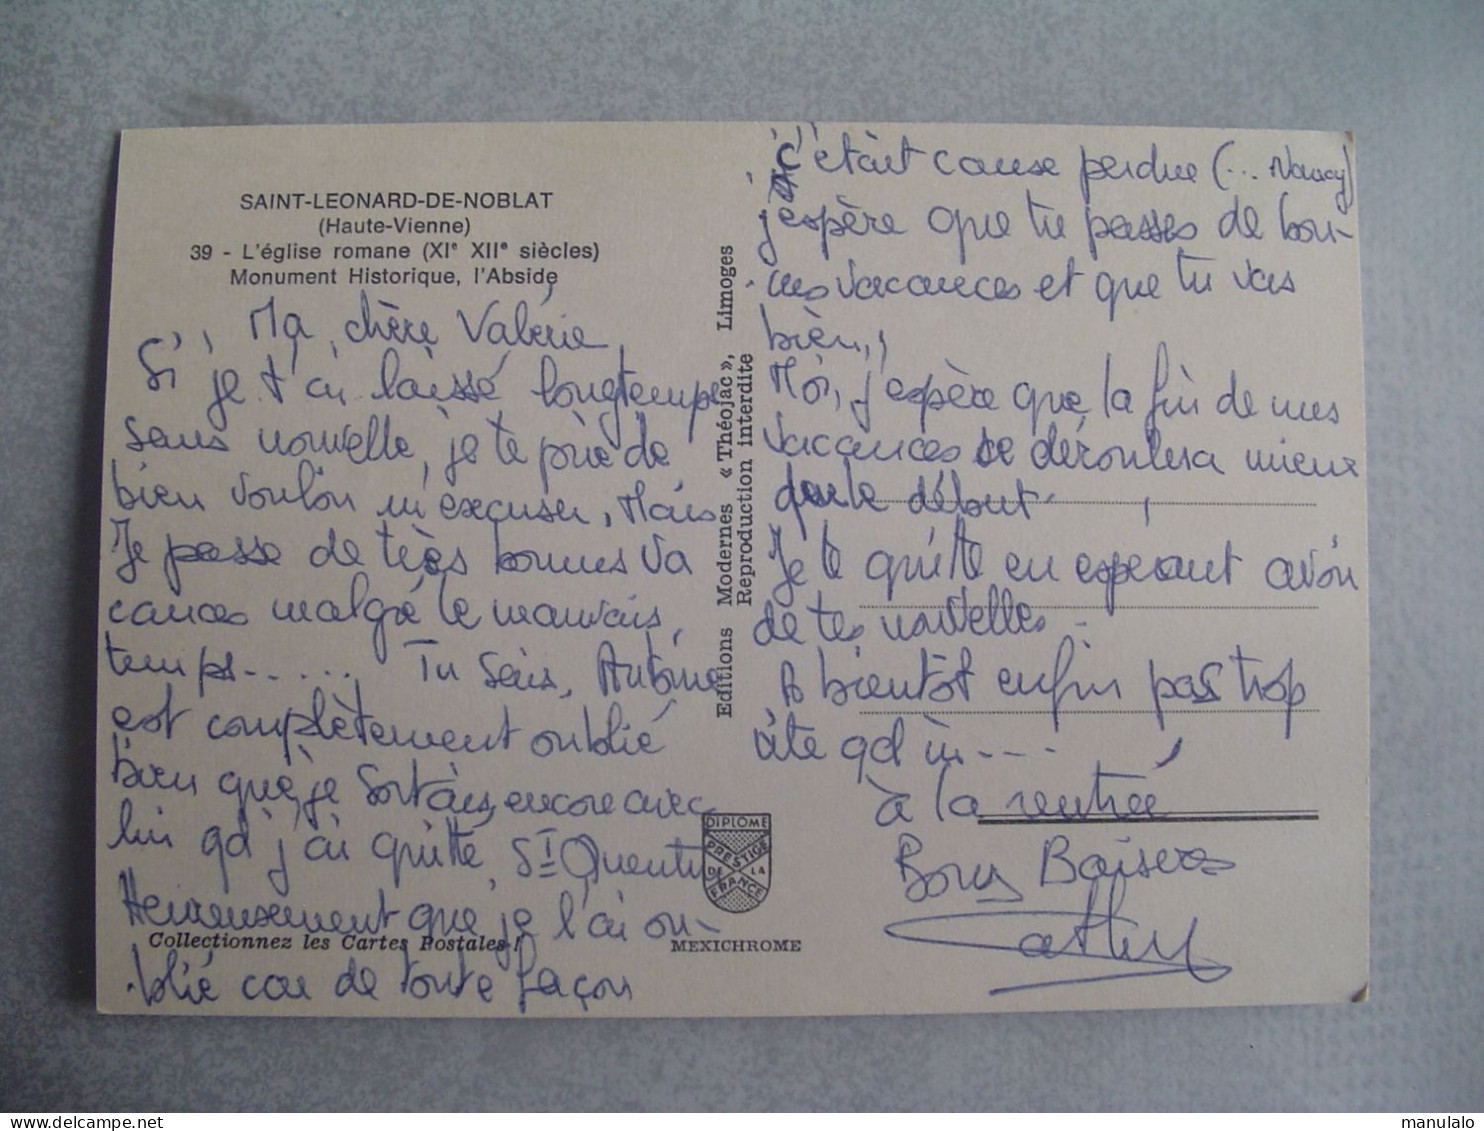 SAINT-LEONARD-DE-NOBLAT
(Haute-Vienne)
39 - L'église romane (XIe XIIe siècles)
Monument Historique, l'Abside
Ma chère Valérie,
Si je t'ai laissé longtemps
sans nouvelle, je te prie de
bien vouloir m'excuser, Mais
Je passe de très bonnes va
cances malgré le mauvais
temps...... Tu sais, Antoine
est complètement oublié
bien que je sortais encore avec
lui qd j'ai quitté St Quentin
Heureusement que je l'ai ou-
blié car de toute façon
Collectionnez les Cartes Postales !
Editions Modernes « Théojac », Limoges
Reproduction interdite
DIPLOME
PRESTIGE
DE LA
FRANCE
MEXICHROME
c'était cause perdue (... Nancy)
j'espère que tu passes de bon-
nes vacances et que tu vas
bien,
Moi, j'espère que la fin de mes
vacances se déroulera mieux
que le début
Je te quitte en esperant avoir
de tes nouvelles.
A bientôt enfin pas trop
vite qd m....
à la rentrée
Bons Baisers
Cathy
manulalo